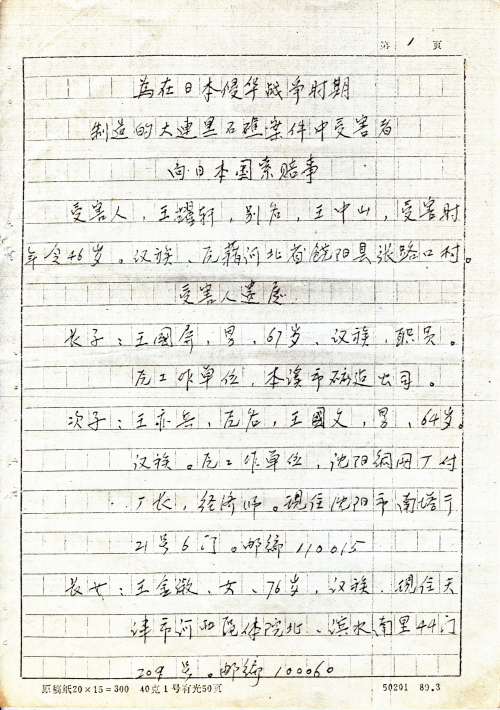 第 1 页
为在日本侵华战争时期
制造的大连黑石礁案件中受害者
向日本国索赔事
受害人，王耀轩，别名，王中山，受害时
年令46岁。汉族、原籍河北省饶阳县张路口村。
受害人遗属
长子：王國屏，男、67岁、汉族，职员。
原工作单位，本溪市砖造公司。
次子：王亦兵，原名，王國文，男、64岁。
汉族。原工作单位，沈阳綱网厂付
厂长，经济师。现住沈阳市南塔于
21号6门。邮编110015
長女：王金淑、女、76岁，汉族，现住天
津市河西区体院北、滨水南里44门
209号。邮编100060
原稿紙20×15=300 40克1号有光50頁
50201 89.3